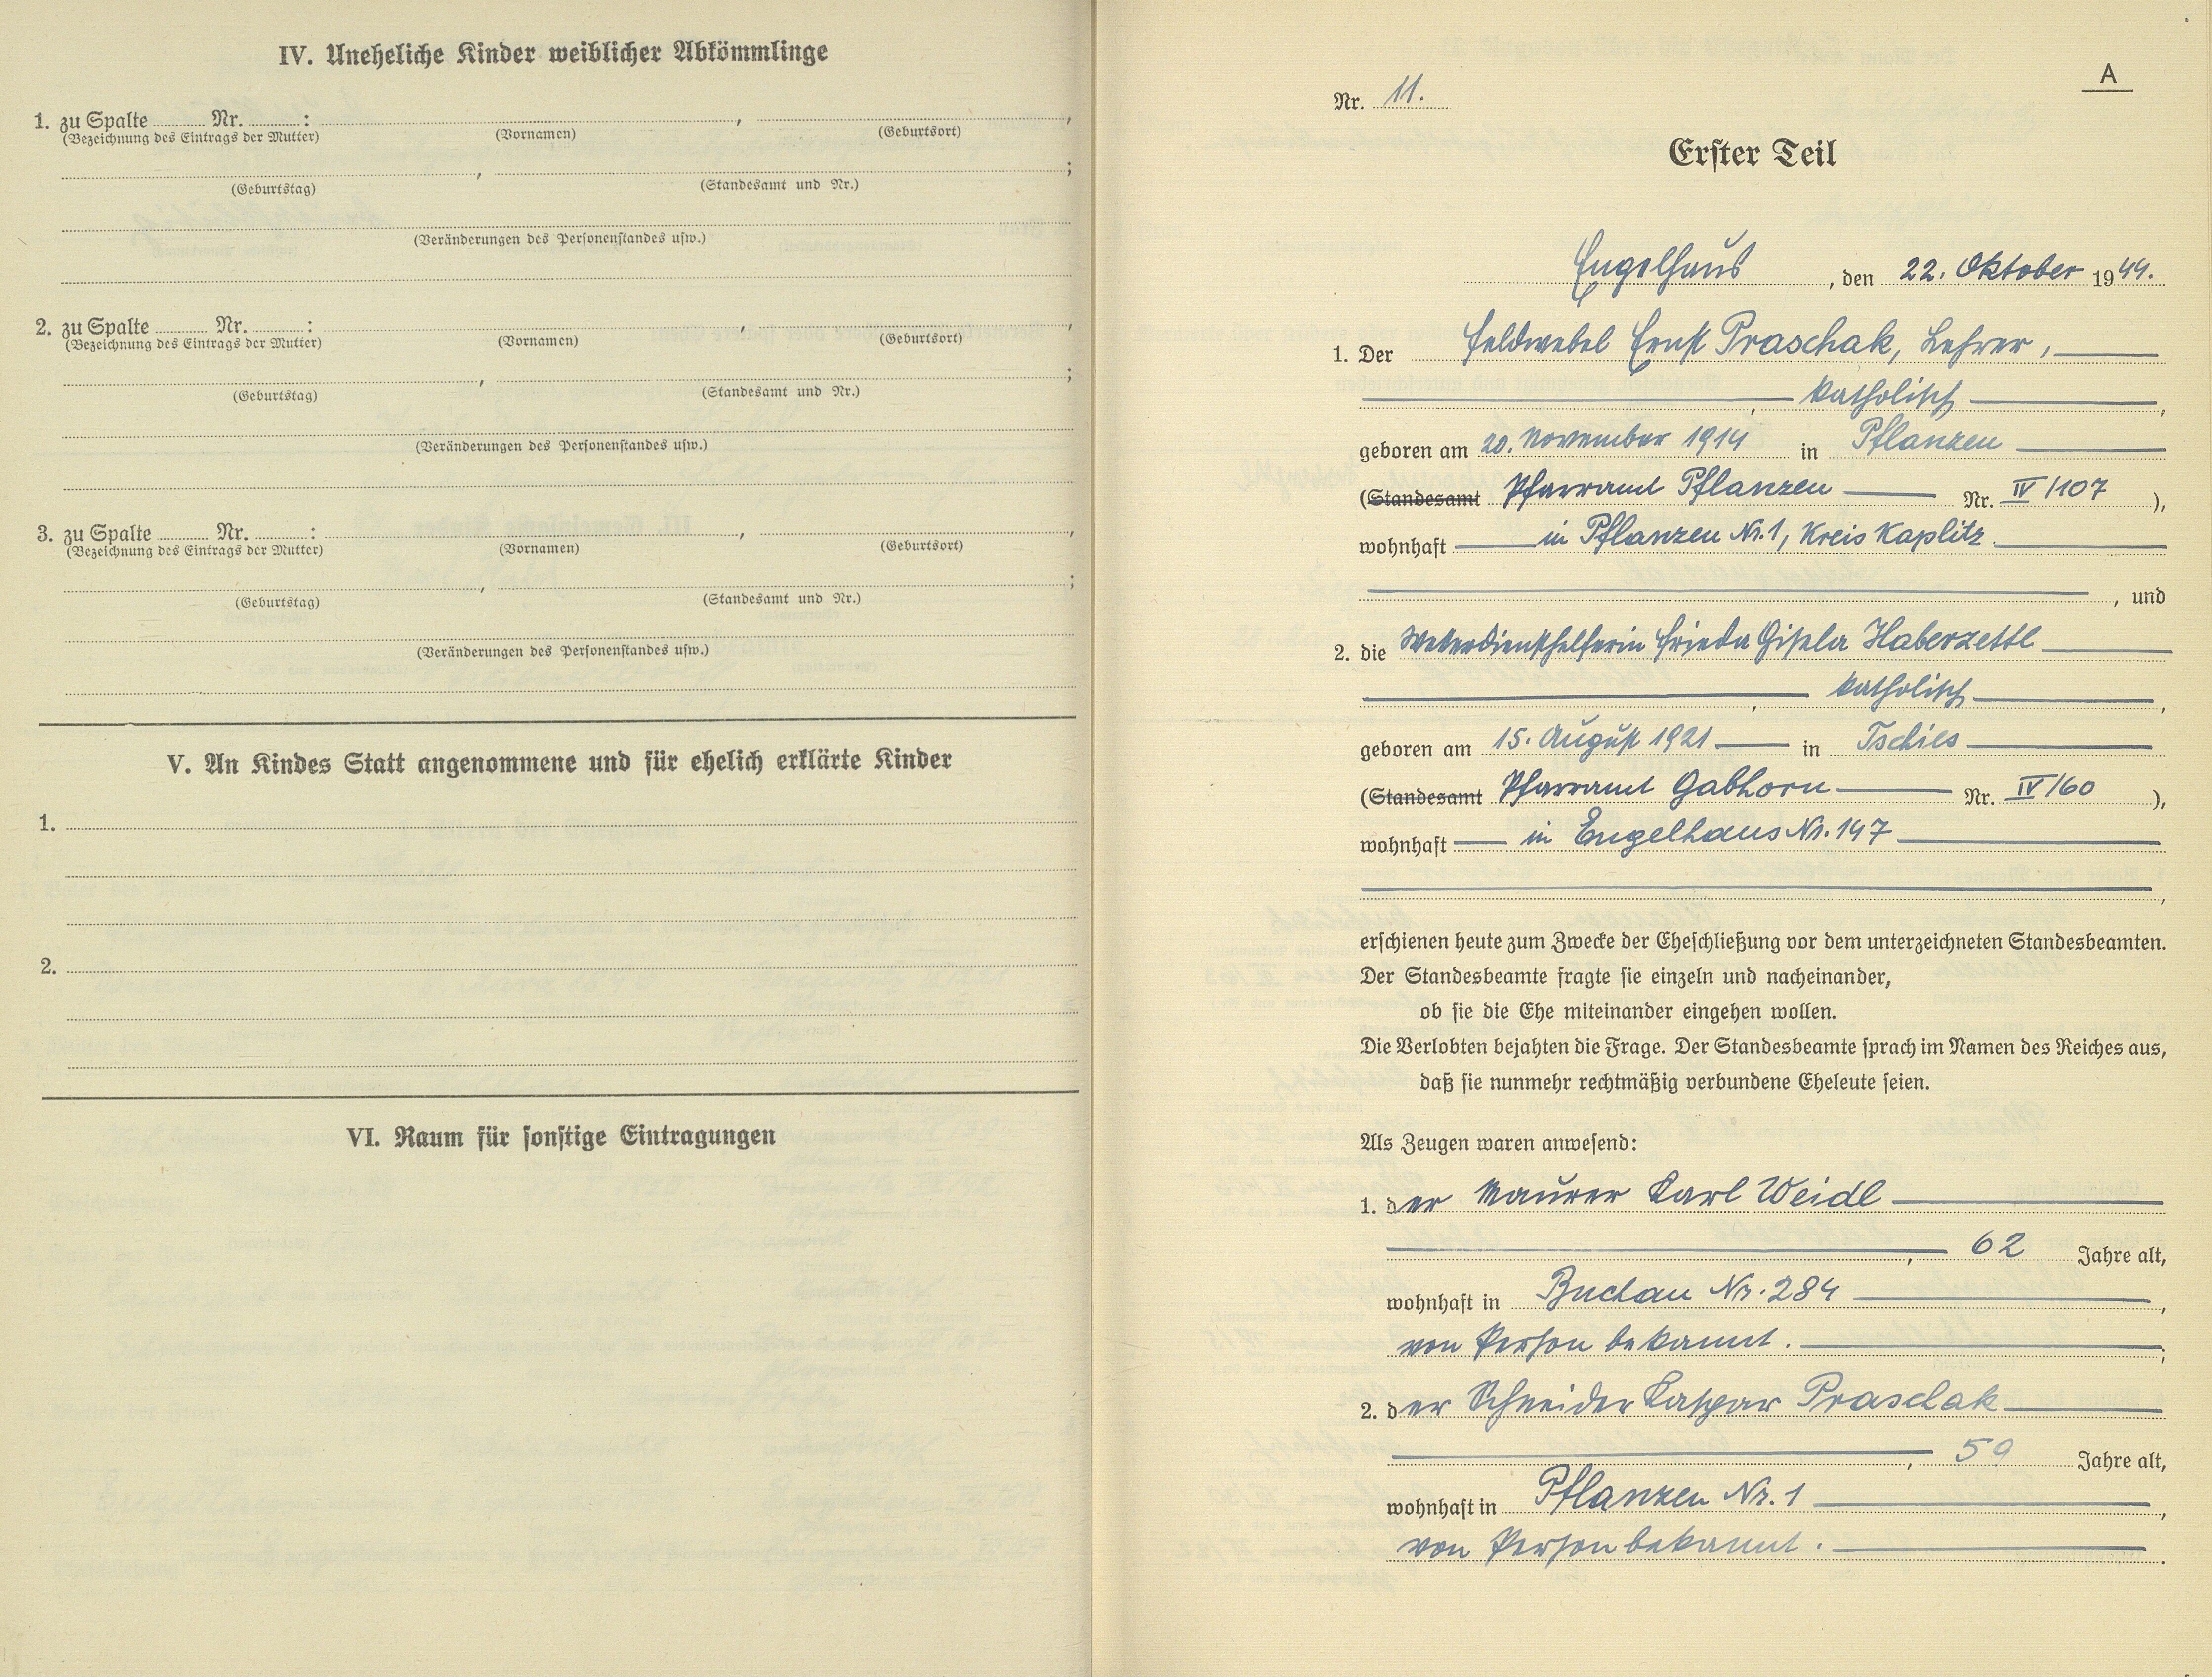 IV. Uneheliche Kinder weiblicher Abkömmlinge
1. zu Spalte ........ Nr. ........ : ........ , ........ ,
(Bezeichnung des Eintrags der Mutter) (Vornamen) (Geburtsort)
........ , ........ ;
(Geburtstag) (Standesamt und Nr.)
(Veränderungen des Personenstandes usw.)
2. zu Spalte ........ Nr. ........ : ........ , ........ ,
(Bezeichnung des Eintrags der Mutter) (Vornamen) (Geburtsort)
........ , ........ ;
(Geburtstag) (Standesamt und Nr.)
(Veränderungen des Personenstandes usw.)
3. zu Spalte ........ Nr. ........ : ........ , ........ ,
(Bezeichnung des Eintrags der Mutter) (Vornamen) (Geburtsort)
........ , ........ ;
(Geburtstag) (Standesamt und Nr.)
(Veränderungen des Personenstandes usw.)
V. An Kindes Statt angenommene und für ehelich erklärte Kinder
1.
2.
VI. Raum für sonstige Eintragungen
A
Nr. 11.
Erster Teil
Engelhaus, den 22. Oktober 1944.
1. Der Feldwebel Ernst Praschak, Lehrer,
, katholisch ,
geboren am 20. November 1914 in Pflanzen
(Standesamt Pfarramt Pflanzen Nr. IV/107 ),
wohnhaft in Pflanzen Nr. 1, Kreis Kaplitz
, und
2. die Wetterdiensthelferin Frieda Gisela Haberzettl
, katholisch ,
geboren am 15. August 1921 in Tschies
(Standesamt Pfarramt Gabhorn Nr. IV/60 ),
wohnhaft in Engelhaus Nr. 147
,
erschienen heute zum Zwecke der Eheschließung vor dem unterzeichneten Standesbeamten.
Der Standesbeamte fragte sie einzeln und nacheinander,
ob sie die Ehe miteinander eingehen wollen.
Die Verlobten bejahten die Frage. Der Standesbeamte sprach im Namen des Reiches aus,
daß sie nunmehr rechtmäßig verbundene Eheleute seien.
Als Zeugen waren anwesend:
1. der Maurer Karl Weidl
, 62 Jahre alt,
wohnhaft in Buchau Nr. 284 ,
von Person bekannt. ;
2. der Schneider Kaspar Praschak
, 59 Jahre alt,
wohnhaft in Pflanzen Nr. 1 ,
von Person bekannt. .